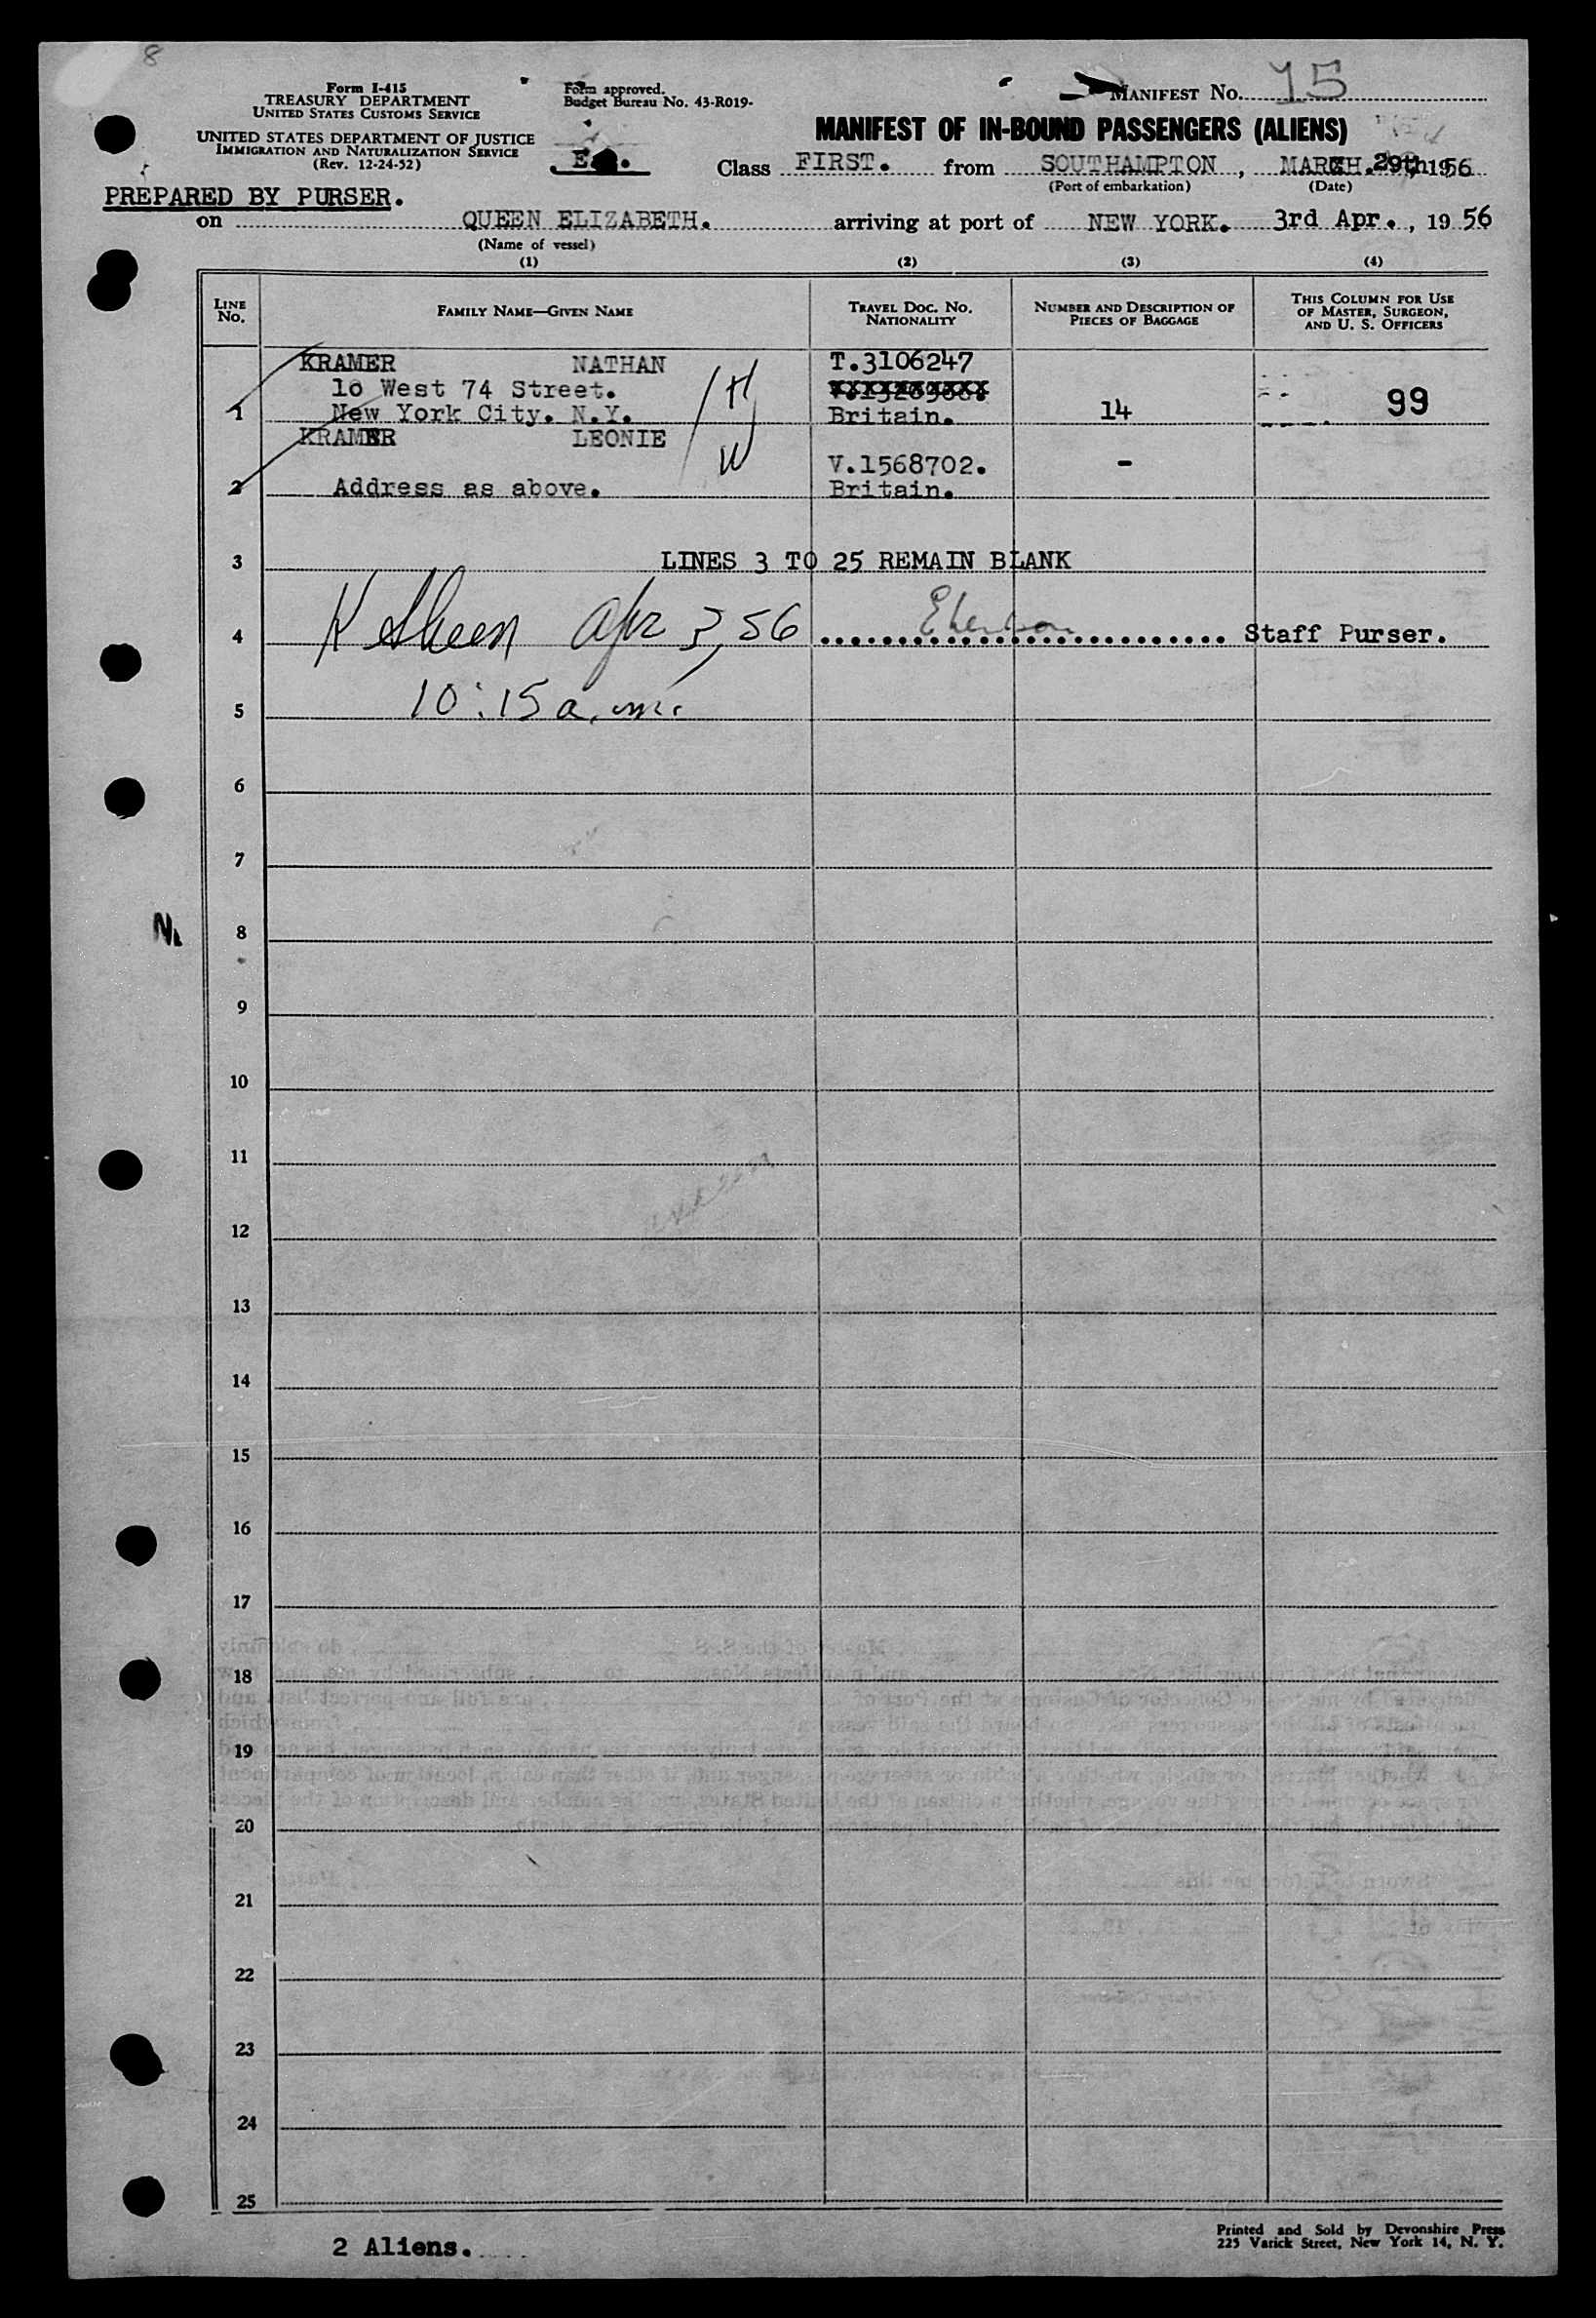 8
Form I-415
TREASURY DEPARTMENT
UNITED STATES CUSTOMS SERVICE
UNITED STATES DEPARTMENT OF JUSTICE
IMMIGRATION AND NATURALIZATION SERVICE
(Rev. 12-24-52)
Form approved.
Budget Bureau No. 43-R019-
MANIFEST No. 15
MANIFEST OF IN-BOUND PASSENGERS (ALIENS)
Class FIRST. from SOUTHAMPTON , MARCH. 29th 1956
(Port of embarkation) (Date)
PREPARED BY PURSER.
on QUEEN ELIZABETH. arriving at port of NEW YORK. 3rd Apr. , 19 56
(Name of vessel)
(1) (2) (3) (4)
LINE No. FAMILY NAME—GIVEN NAME TRAVEL DOC. No. NATIONALITY NUMBER AND DESCRIPTION OF PIECES OF BAGGAGE THIS COLUMN FOR USE OF MASTER, SURGEON, AND U. S. OFFICERS
KRAMER NATHAN T.3106247
10 West 74 Street. H
1 New York City. N.Y. Britain. 14 99
KRAMER LEONIE
W V.1568702. -
2 Address as above. Britain.
3 LINES 3 TO 25 REMAIN BLANK
4 K Sheen Apr 3, 56 Staff Purser.
5 10:15 a.m.
6
7
N.
8
9
10
11
12
13
14
15
16
17
18
19
20
21
22
23
24
25
2 Aliens.
Printed and Sold by Devonshire Press
225 Varick Street, New York 14, N. Y.